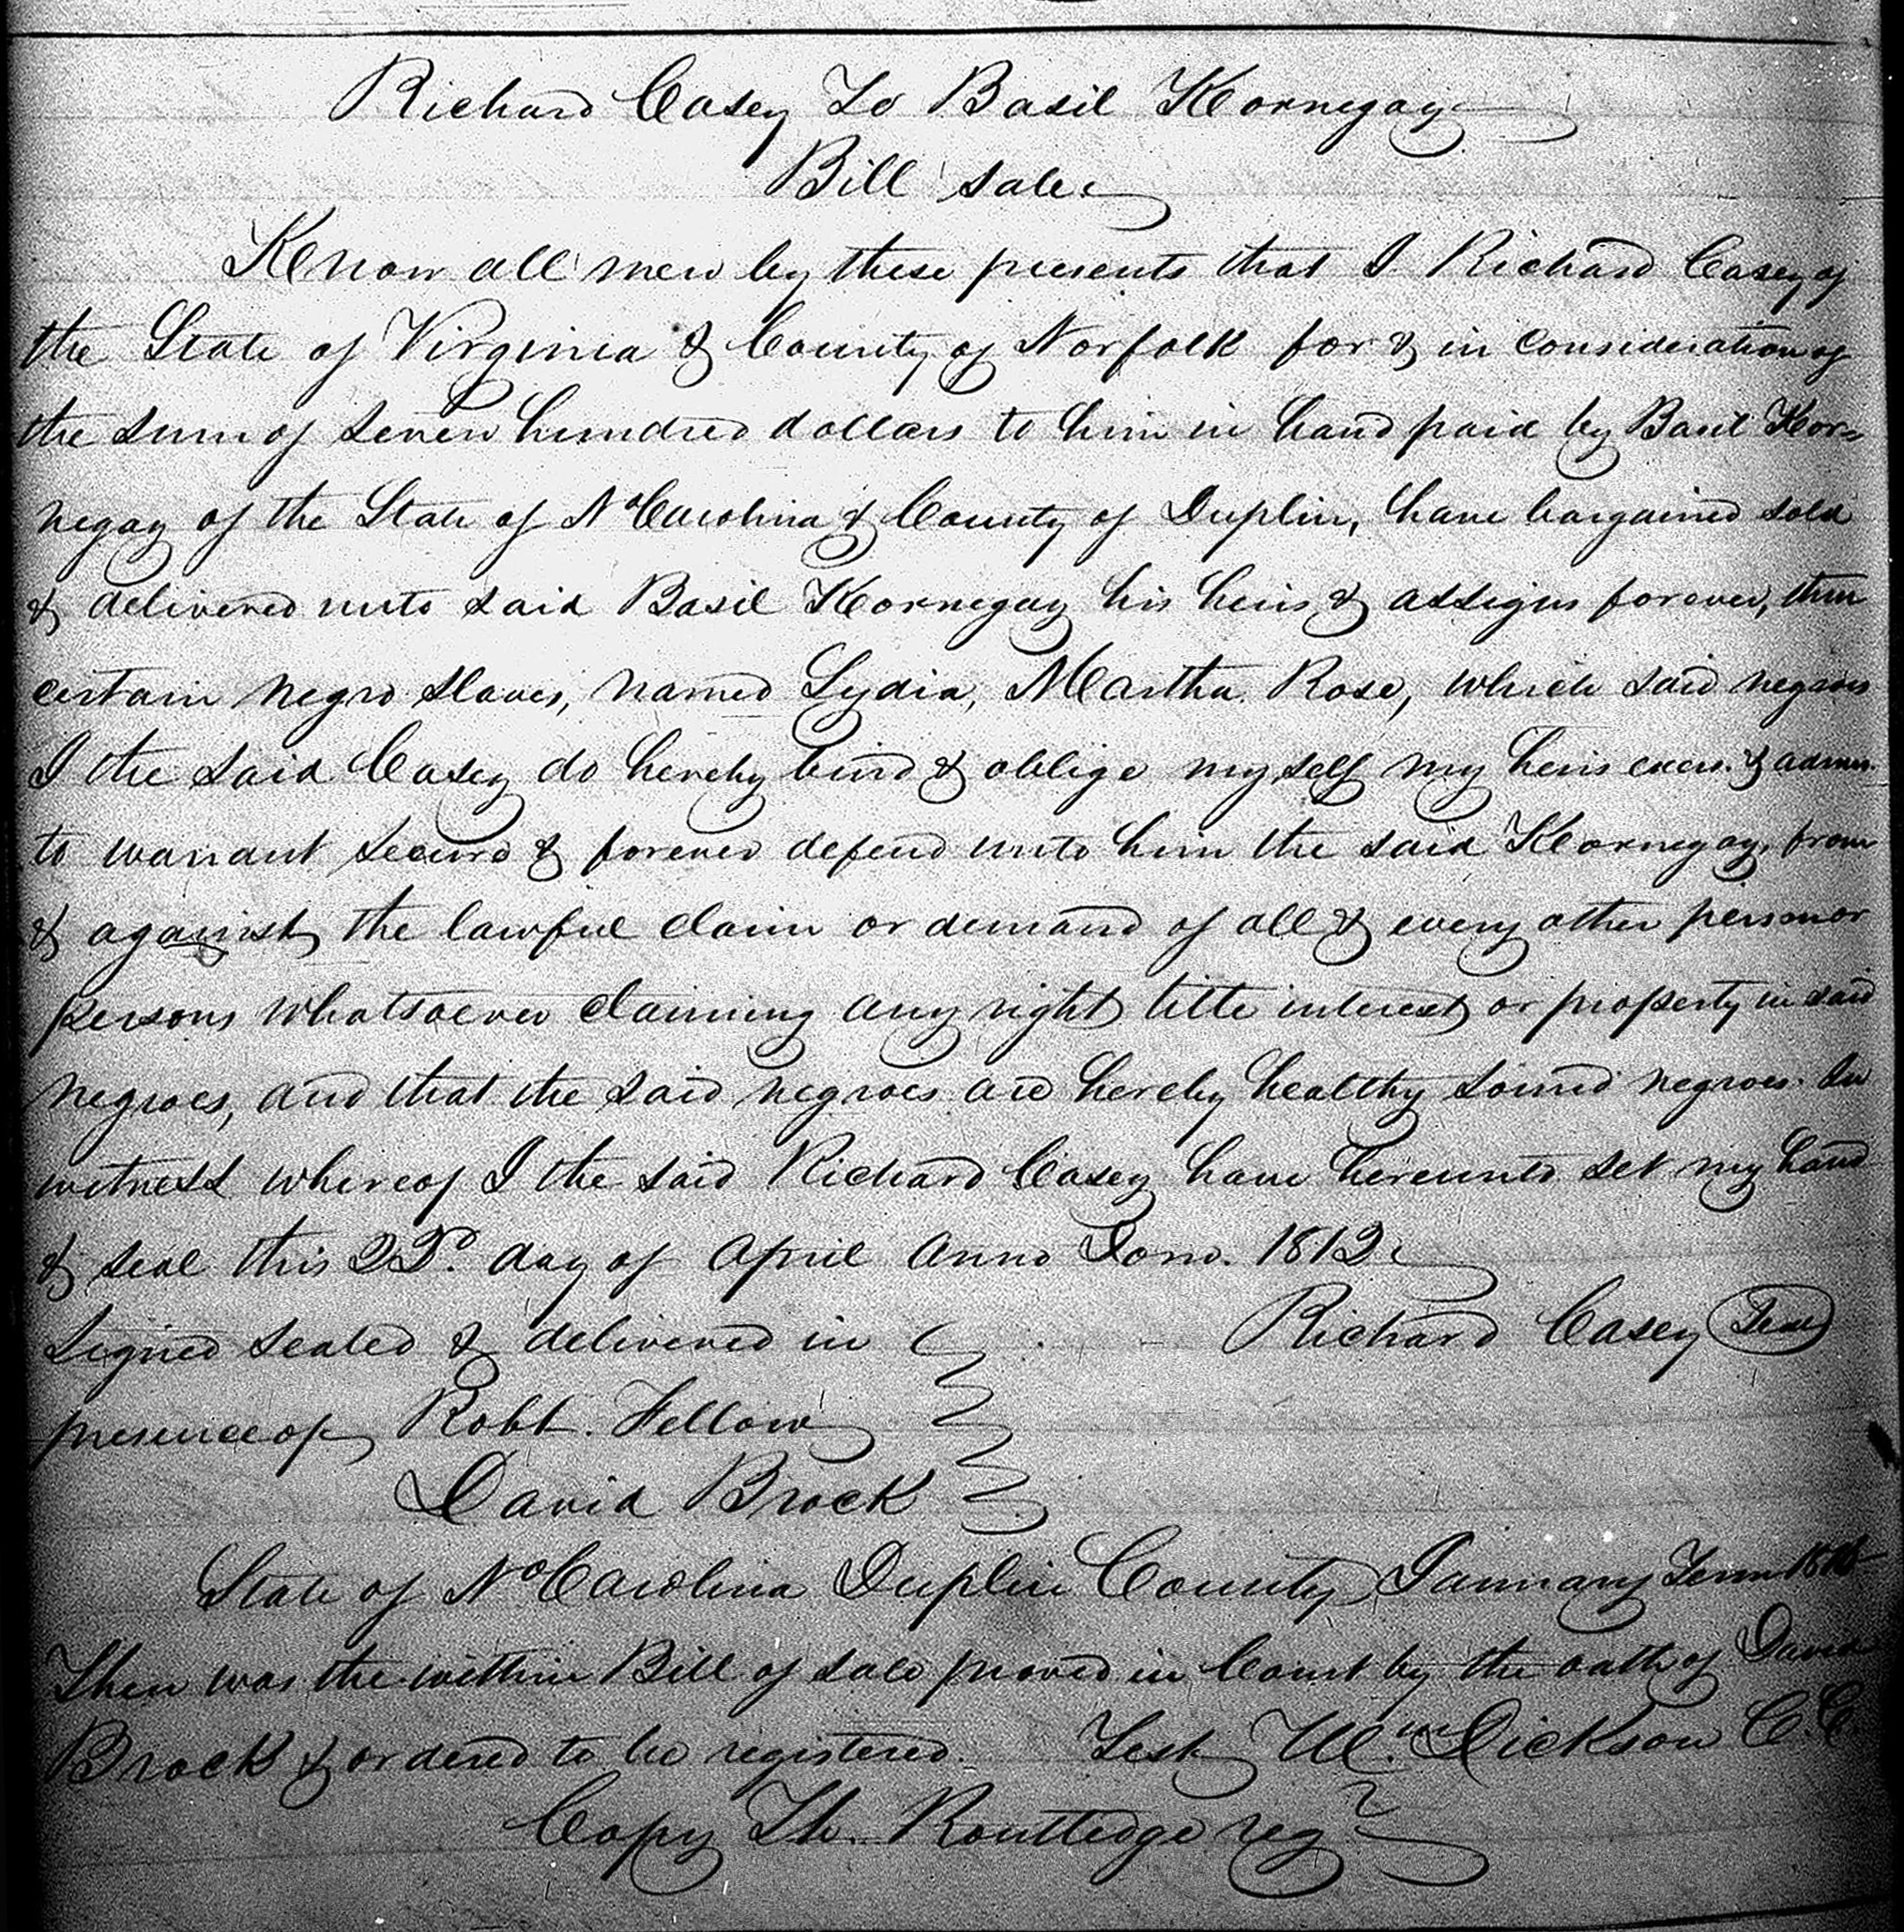 Richard Casey To Basil Kornegay
Bill Sale
Know all men by these presents that I Richard Casey of
the State of Virginia & County of Norfolk for & in consideration of
the sum of seven hundred dollars to him in hand paid by Basil Kor=
negay of the State of No Carolina & County of Duplin, have bargained sold
& delivered unto said Basil Kornegay his heirs & assigns forever,
certain negro slaves, named Lydia, Martha Rose, which said negroes
I the said Casey do hereby bind & oblige my self my heirs exers. & admrs.
to warrant secure & forever defend unto him the said Kornegay, from
& against the lawful claim or demand of all & every other person or
persons whatsoever claiming any right title interest or property in said
negroes, and that the said negroes are hereby healthy sound negroes. In
witness whereof I the said Richard Casey have hereunto set my hand
& seal this 23d. day of April Anno Domo. 1812
Signed sealed & delivered in Richard Casey Seal
presence of Robt. Fellow
David Brock
State of No Carolina Duplin County January Term
Then was the within Bill of sale proved in Court by the oath of David
Brock & ordered to be registered. Test Wm. Dickson C.C.
Copy Th. Routledge regr